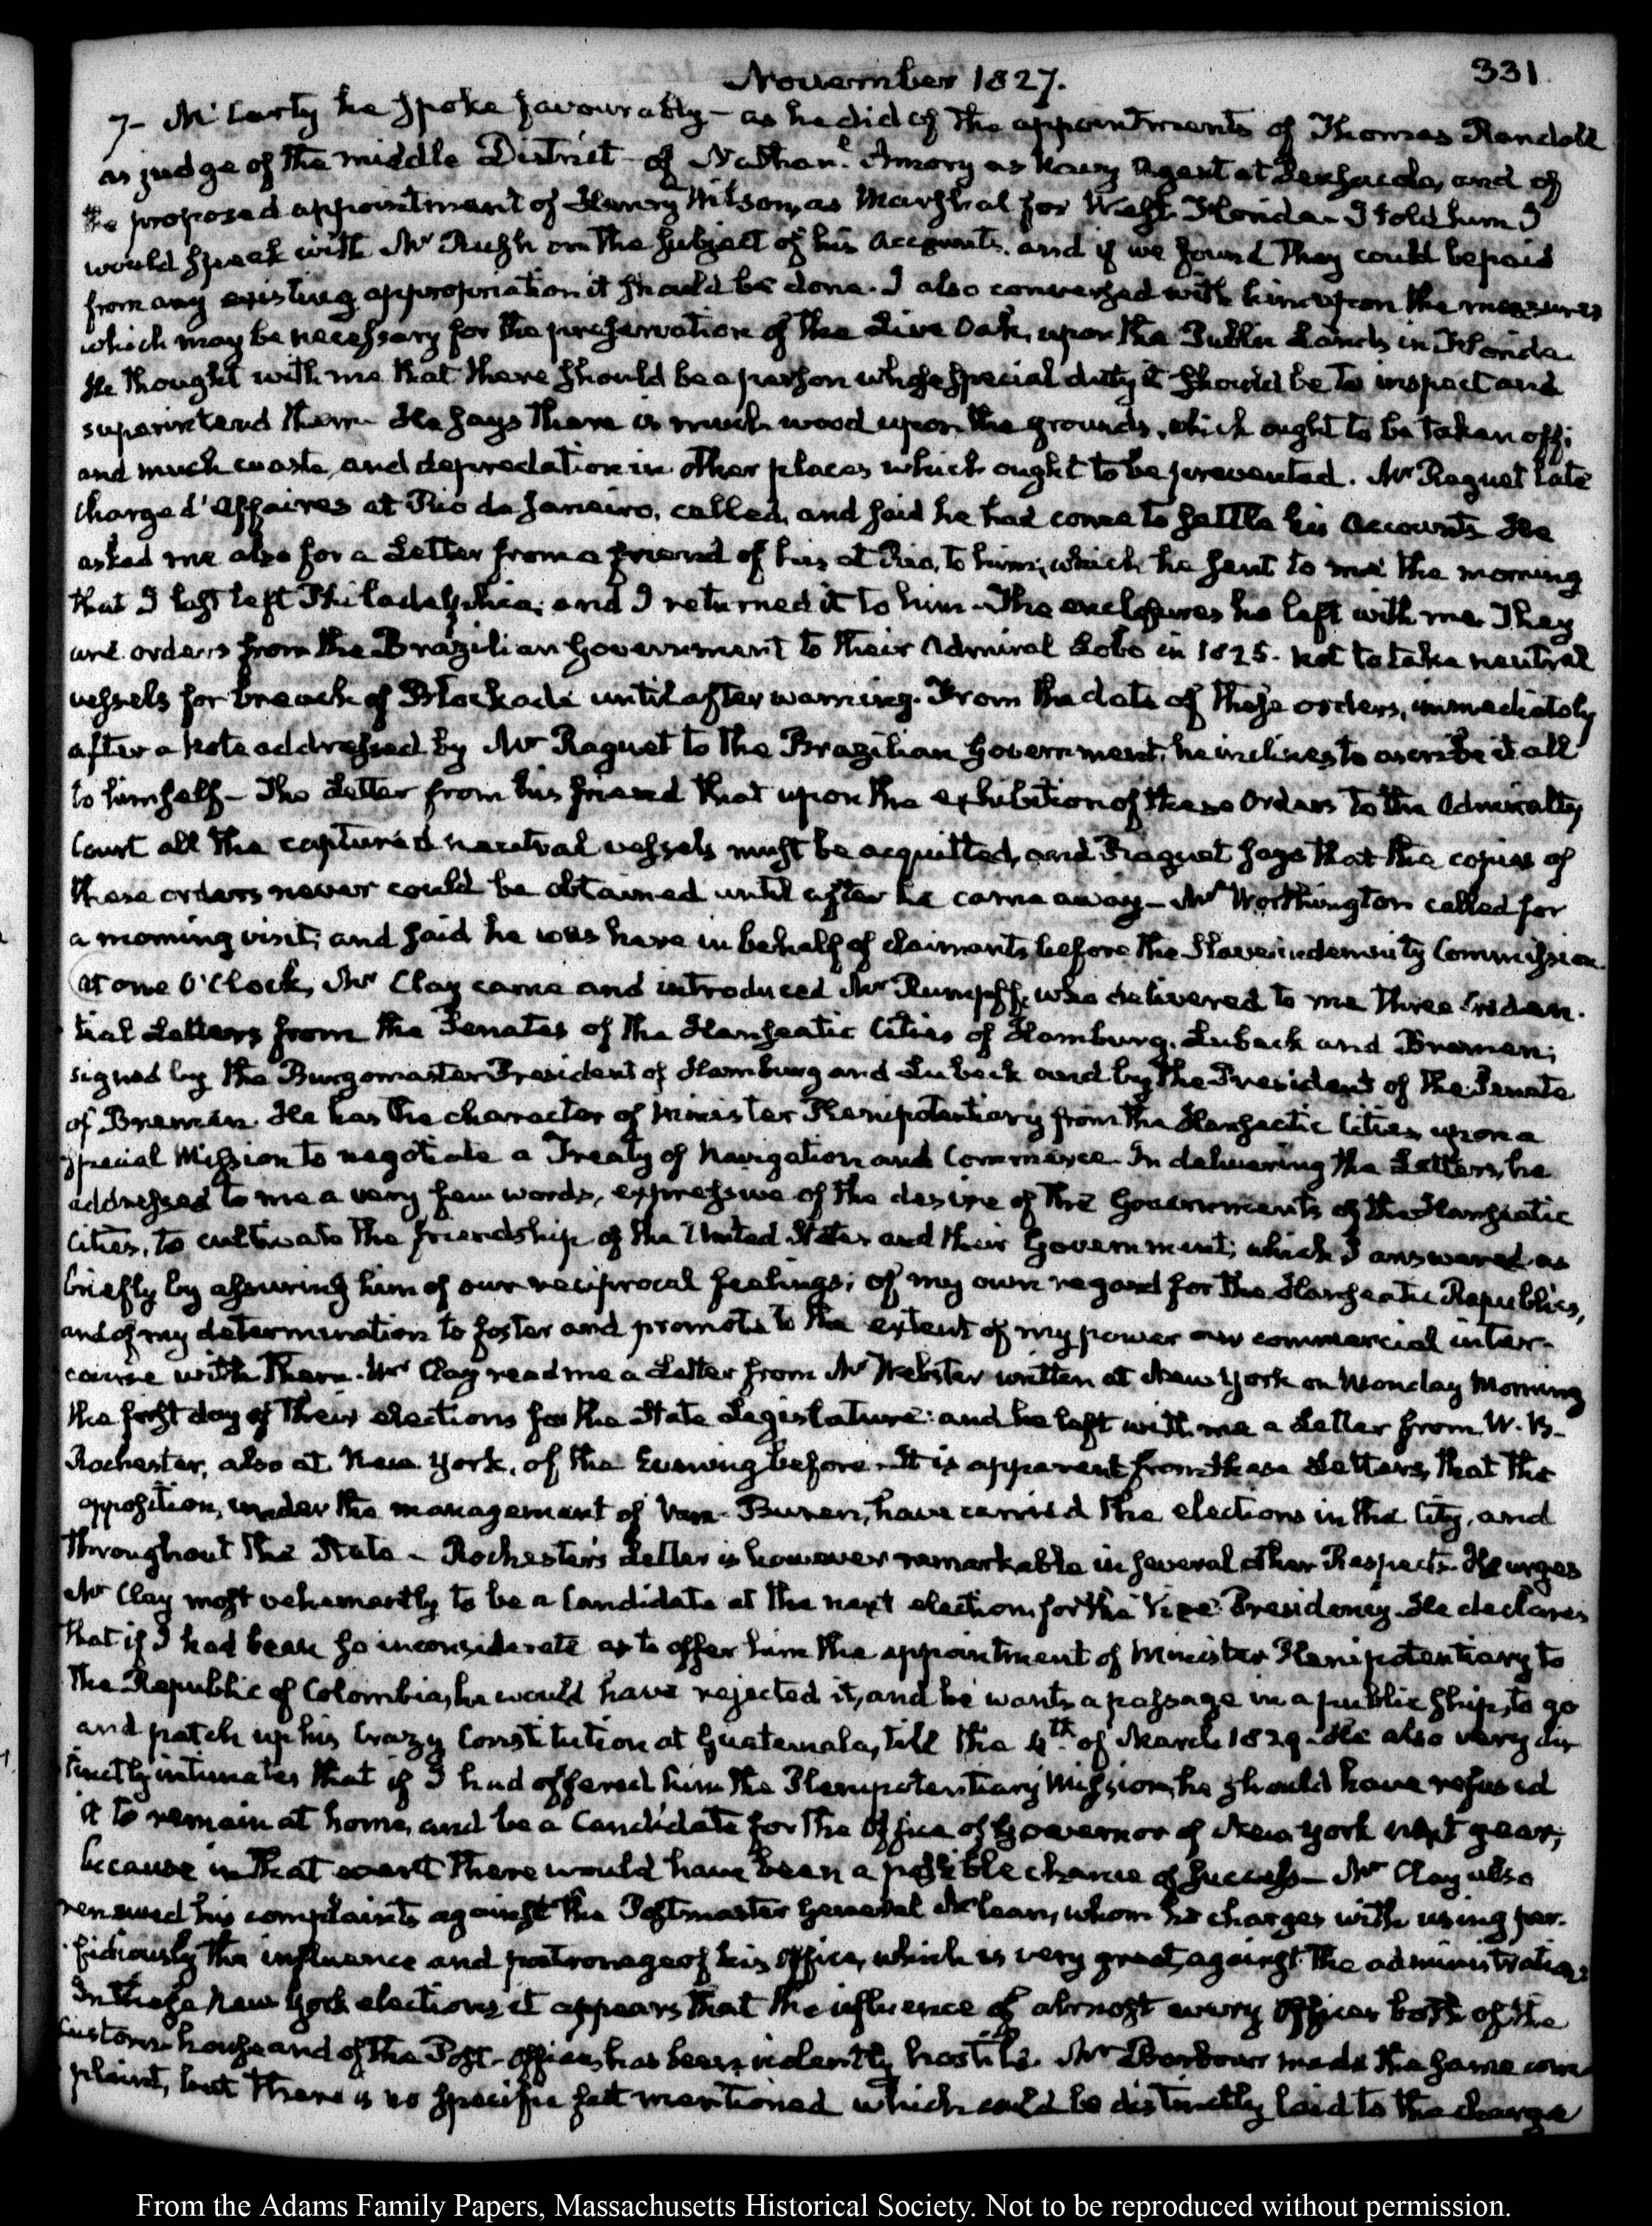 November 1827.
331
7— McCarty he spoke favourably— as he did of the appointments of Thomas Randall
as judge of the middle District— of Nathan.l Amory as Navy Agent at Pensacola, and of
the proposed appointment of Henry Wilson, as Marshal for West Florida— I told him I
would speak with Mr Rush on the subject of his accounts, and if we found they could be paid
from any existing appropriation it should be done. I also conversed with him upon the measures
which may be necessary for the preservation of the Live Oak, upon the Public Lands in Florida
He thought with me that there should be a person whose special duty it should be to inspect and
superintend them— He says there is much wood upon the grounds, which ought to be taken off;
and much waste, and depredation in other places which ought to be prevented. Mr Raguet late
Charge d'Affaires at Rio de Janeiro, called, and said he had come to settle his Accounts— He
asked me also for a Letter from a friend of his at Rio, to him, which he sent to me the morning
that I last left Philadelphia; and I returned it to him— The enclosures he left with me. They
are orders from the Brazilian Government to their Admiral Lobo in 1825. not to take neutral
vessels for breach of Blockade until after warning. From the date of these orders, immediately
after a Note addressed by Mr Raguet to the Brazilian Government, he inclines to ascribe it all
to himself— The Letter from his friend that upon the exhibition of these Orders to the Admiralty
Court all the captured neutral vessels must be acquitted, and Raguet says that the copies of
these orders never could be obtained until after he came away— Mr Worthington called for
a morning visit; and said he was here in behalf of claimants before the Slave indemnity Commission.
At one O'Clock, Mr Clay came and introduced Mr Rumpff, who delivered to me three Creden-
tial Letters from the Senates of the Hanseatic Cities of Hamburg, Lubeck and Bremen;
signed by the Burgomaster President of Hamburg and Lubeck and by the President of the Senate
of Bremen. He has the character of Minister Plenipotentiary from the Hanseatic Cities upon a
special Mission to negotiate a Treaty of Navigation and Commerce. In delivering the Letters, he
addressed to me a very few words, expressive of the desire of the Governments of the Hanseatic
Cities, to cultivate the friendship of the United States and their Government; which I answered as
briefly by assuring him of our reciprocal feelings; of my own regard for the Hanseatic Republics,
and of my determination to foster and promote to the extent of my power our commercial inter-
course with them. Mr Clay read me a Letter from Mr Webster written at New York on Monday Morning
the first day of their elections for the State Legislature: and he left with me a Letter from W. B.
Rochester, also at New York, of the Evening before. It is apparent from these Letters, that the
opposition, under the management of Van Buren, have carried the elections in the City, and
throughout the State— Rochester's Letter is however remarkable in several other Respects. He urges
Mr Clay most vehemently to be a Candidate at the next election, for the Vice Presidency. He declares
that if I had been so inconsiderate as to offer him the appointment of Minister Plenipotentiary to
the Republic of Colombia, he would have rejected it, and he wants a passage in a public ship, to go
and patch up his crazy Constitution at Guatemala, till the 4th of March 1829. He also very dis-
tinctly intimates that if I had offered him the Plenipotentiary Mission, he should have refused
it to remain at home, and be a Candidate for the Office of Governor of New York next year;
because in that event there would have been a possible chance of success— Mr Clay also
renewed his complaints against the Postmaster General McLean, whom he charges with using per-
fidiously the influence and patronage of his Office, which is very great, against the administration.
In these New York elections it appears that the influence of almost every Officer both of the
Custom-house and of the Post-office, has been violently hostile. Mr Barbour made the same com-
plaint, but there is no specific fact mentioned which could be distinctly laid to the charge
From the Adams Family Papers, Massachusetts Historical Society. Not to be reproduced without permission.